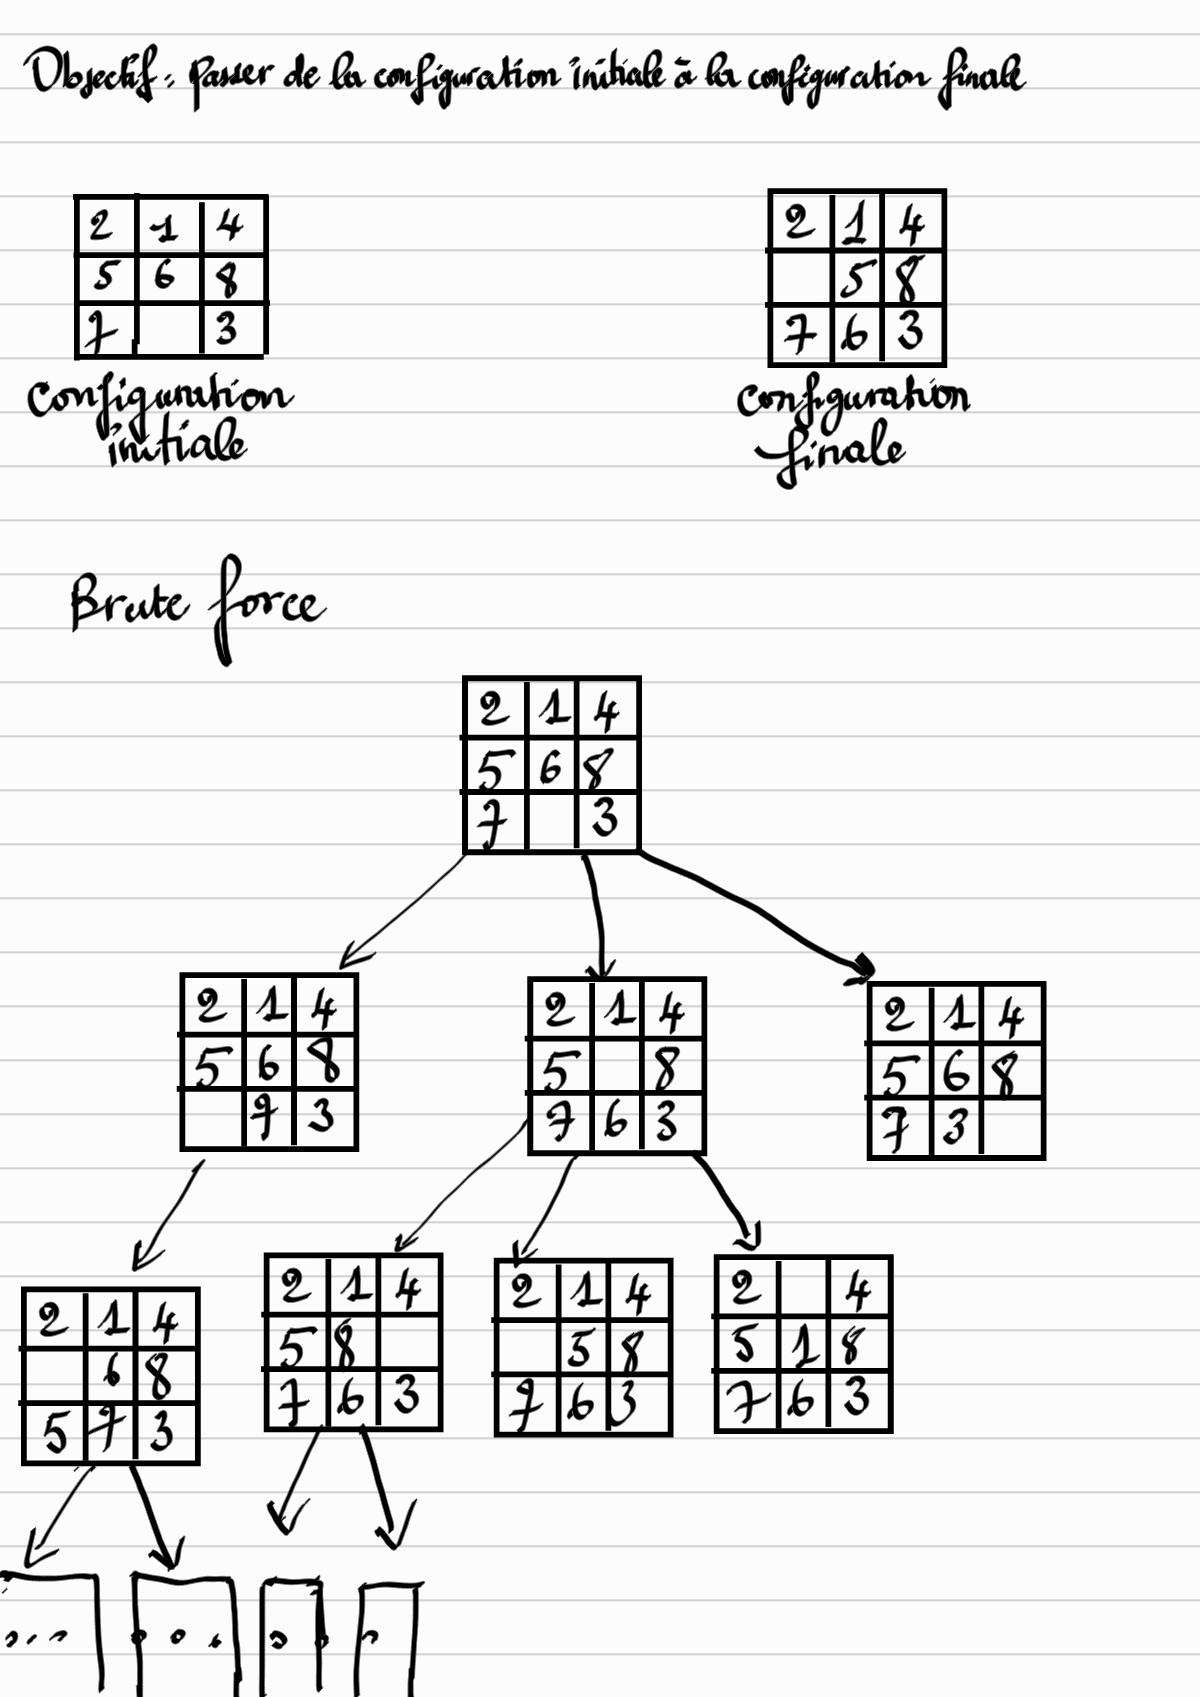 Objectif : Passer de la configuration initiale à la configuration finale
2 1 4
5 6 8
7 3
Configuration
initiale
2 1 4
5 8
7 6 3
Configuration
finale
Brute force
2 1 4
5 6 8
7 3
2 1 4
5 6 8
7 3
2 1 4
5 8
7 6 3
2 1 4
5 6 8
7 3
2 1 4
6 8
5 7 3
2 1 4
5 8
7 6 3
2 1 4
5 8
7 6 3
2 4
5 1 8
7 6 3